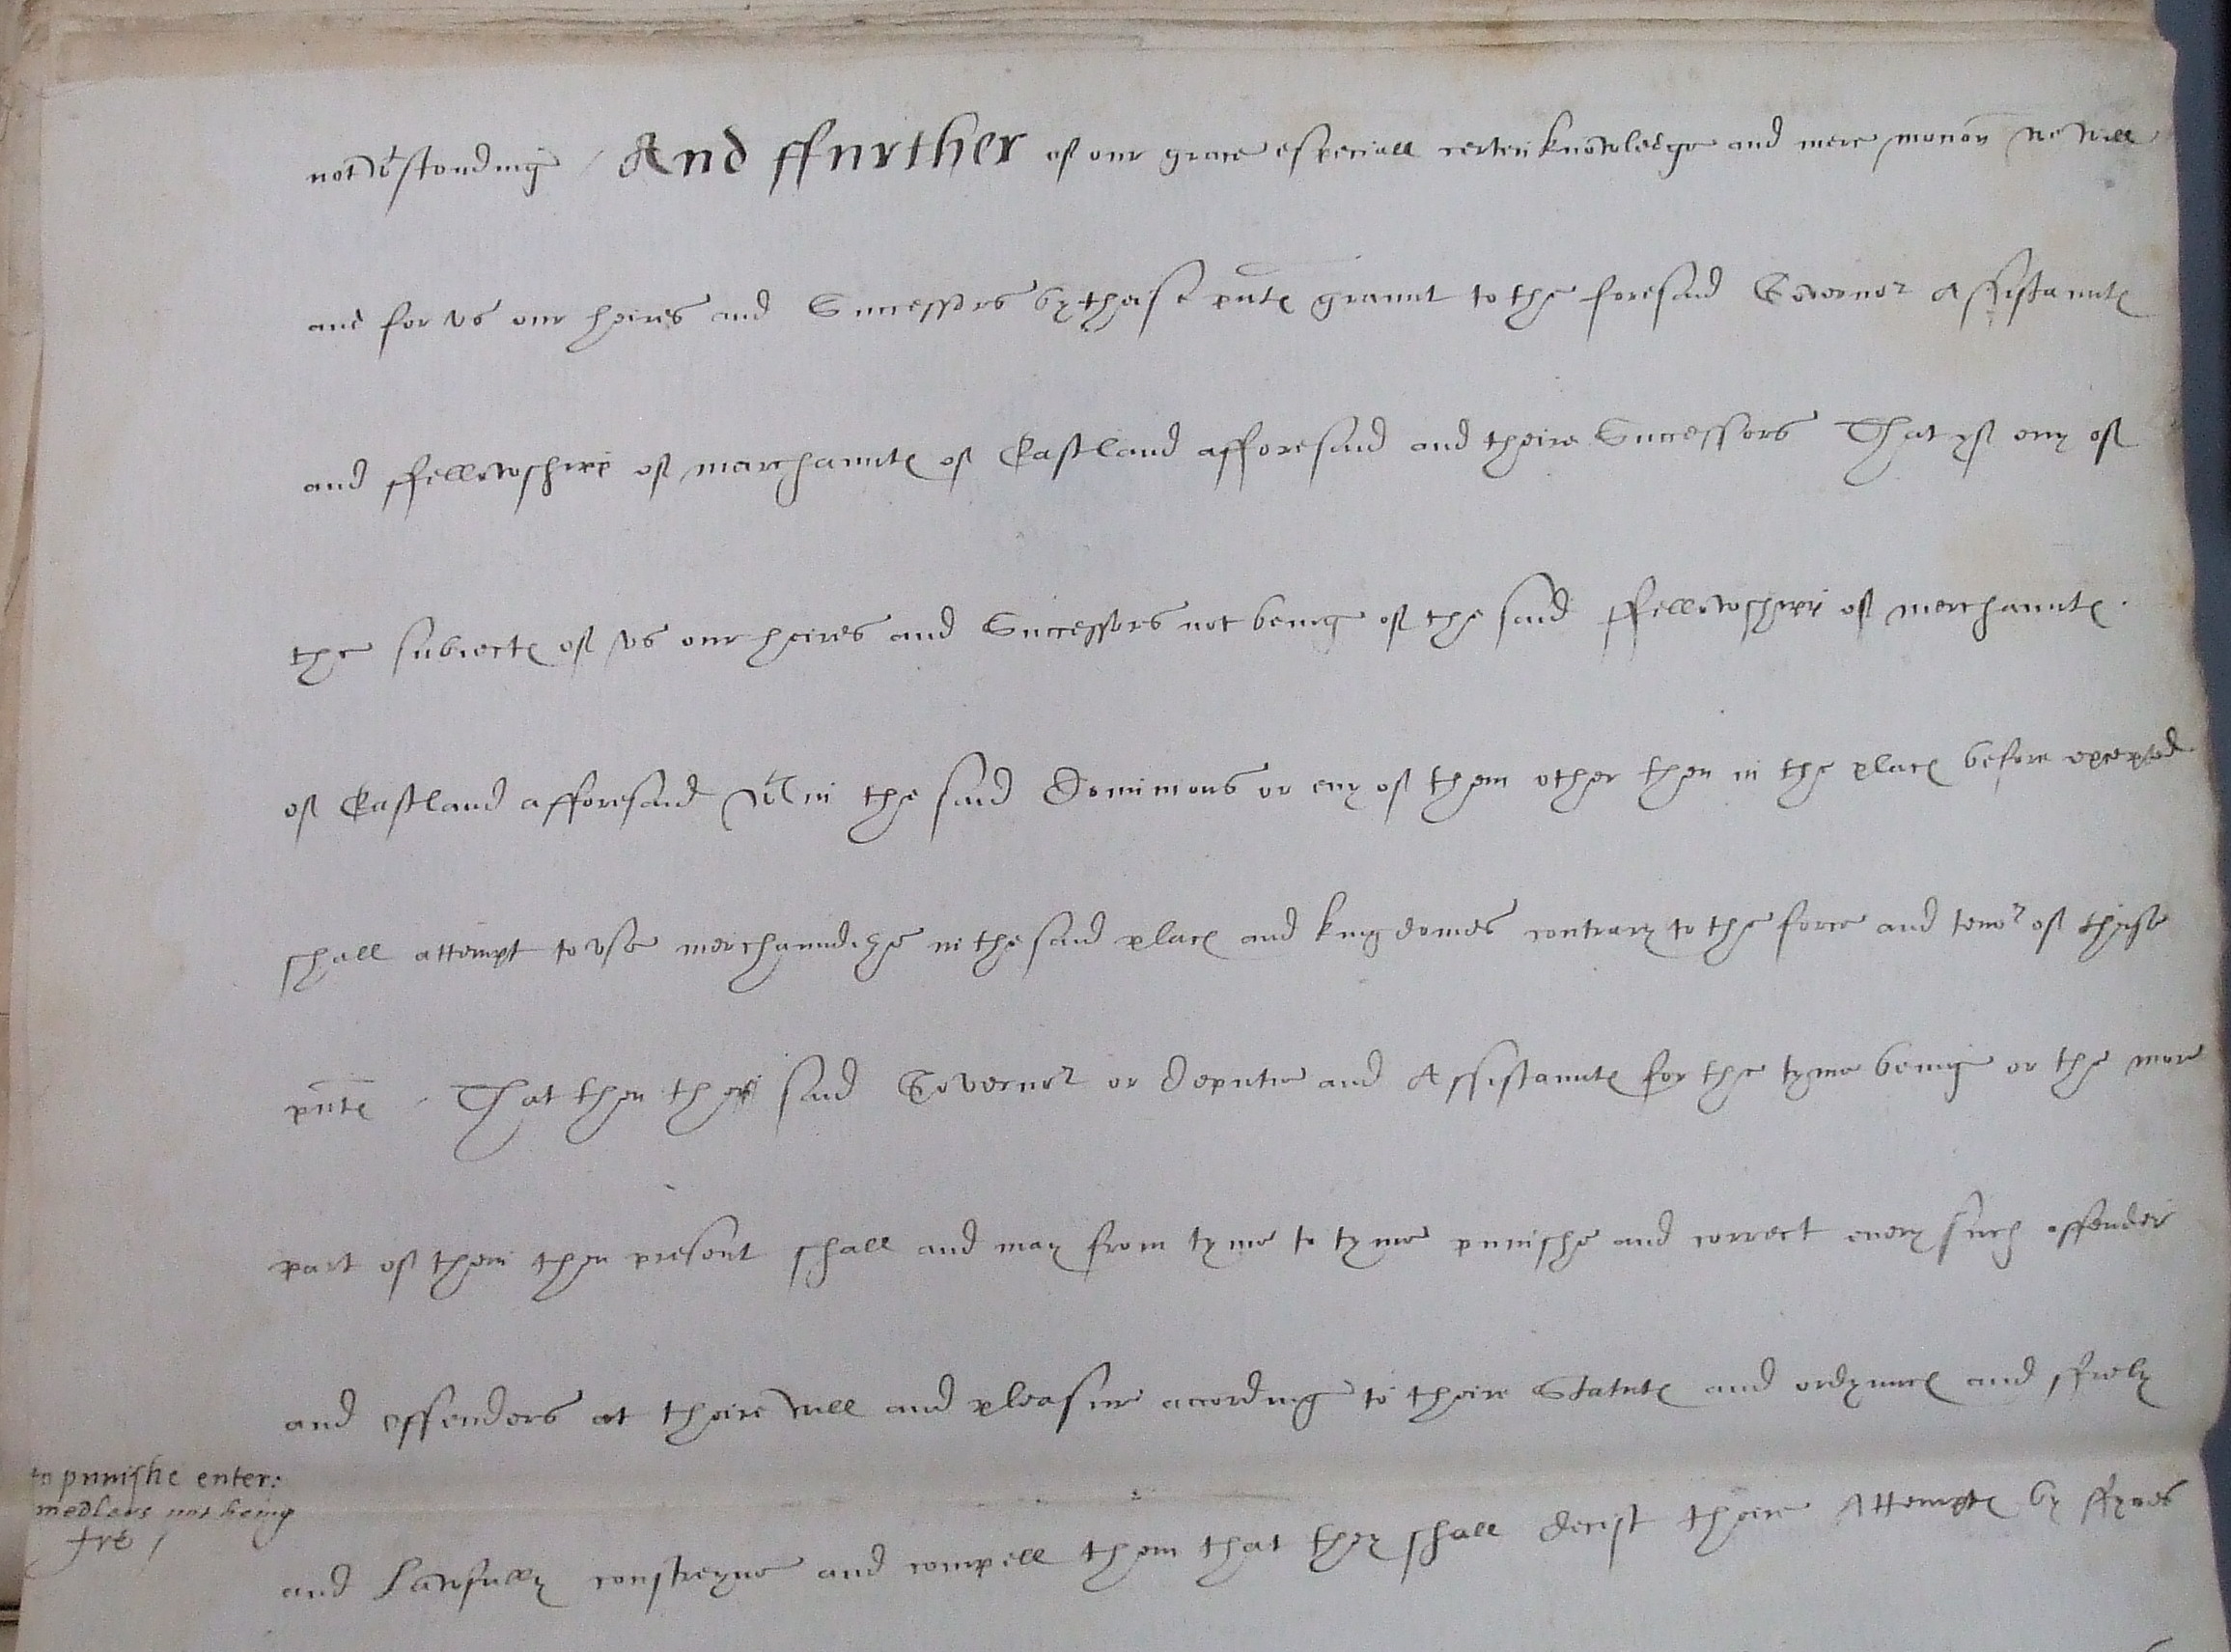 notwtstonding / And ffurther of our grace especiall certen knowledge and mere mocion we will
and for vs our heires and Successors by thease pntes graunt to the foresaid Governor Assistauntes
and ffellowshipp of marchauntes of Eastland afforesaid and theire Successors That yf eny of
the subiectes of vs our heires and Successors not being of the said ffellowshipp of merchauntes .
of Eastland afforesaid wtin the said Dominions or eny of them other then in the places before excepted
shall attempt to vse merchaundize in the said places and kingdomes contrary to the force and tenor of these
pntes / That then the said Governor or Deputie and Assistauntes for the tyme being or the more
part of them then present shall and may from tyme to tyme punishe and correct every such offender
and offenders at theire will and pleasure according to theire Statutes and ordynnces and ffrely
to punishe enter:
medlers not being
fre /
and Lawfully constreyne and compell them that they shall decist theire Attemptes by ffynes